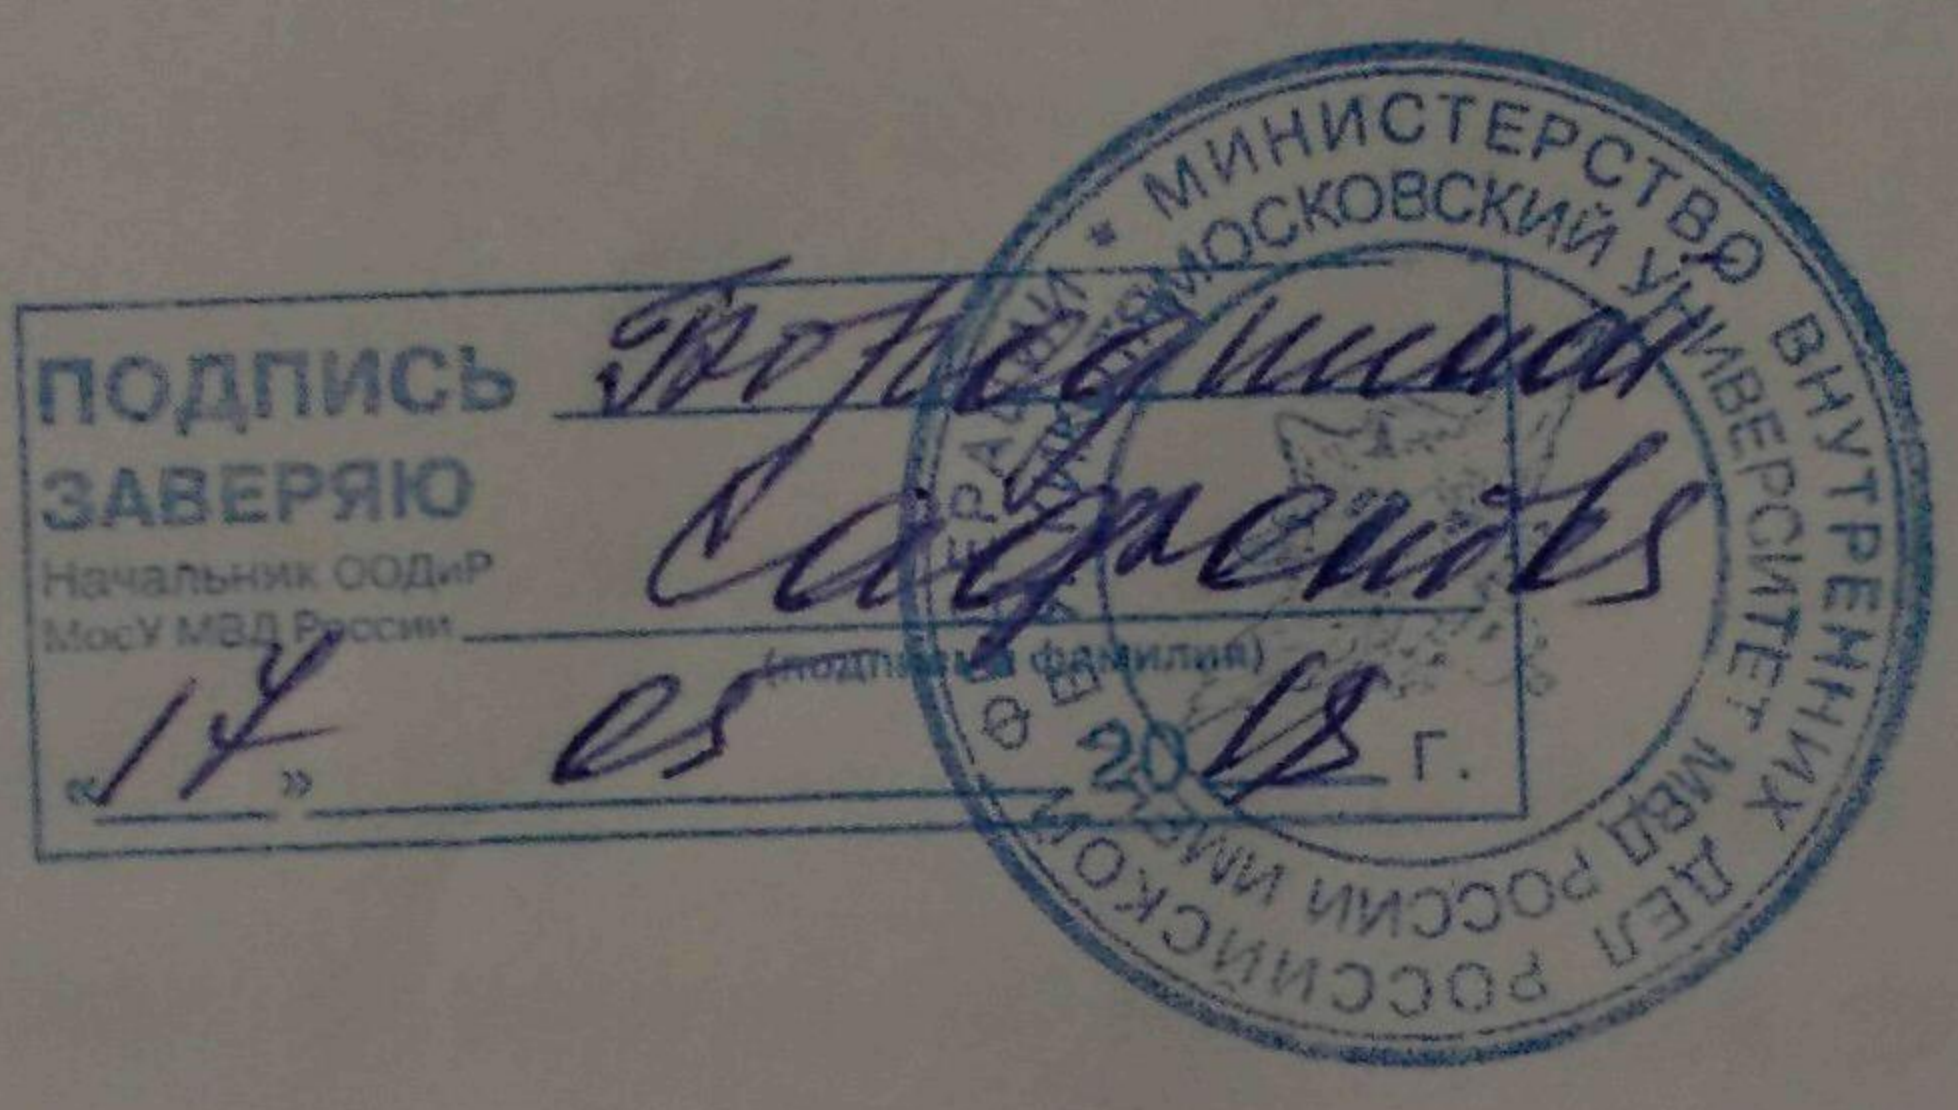 ПОДПИСЬ Бородина
ЗАВЕРЯЮ
Начальник ООДиР
МосУ МВД России
(подпись и фамилия)
«17» 05 2018 г.
* МИНИСТЕРСТВО ВНУТРЕННИХ ДЕЛ РОССИЙСКОЙ ФЕДЕРАЦИИ
МОСКОВСКИЙ УНИВЕРСИТЕТ МВД РОССИИ ИМ